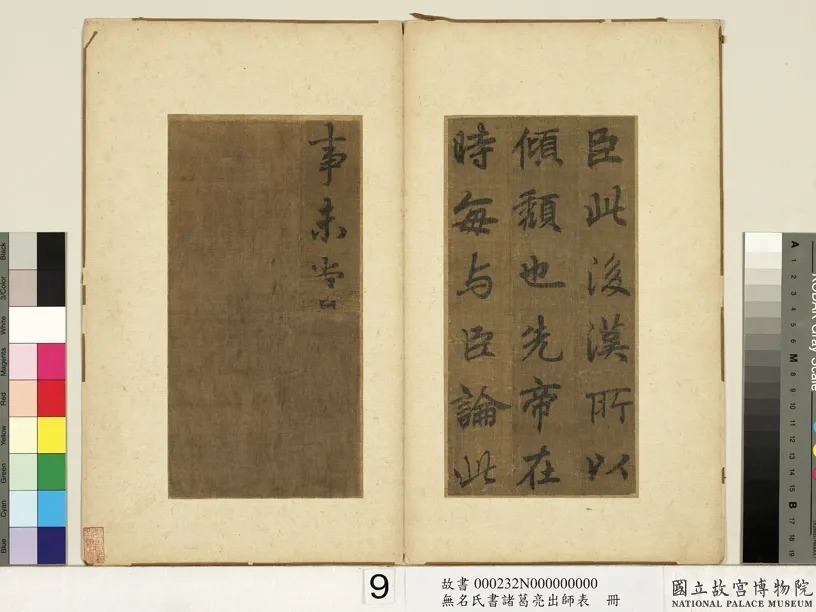 臣此後漢所以
傾頹也先帝在
時每与臣論此
事未嘗
9
故書 000232N000000000
無名氏書諸葛亮出師表 冊
國立故宮博物院
NATIONAL PALACE MUSEUM
Black
3/Color
White
Magenta
Red
Yellow
Green
Cyan
Blue
A
1
2
3
4
5
6
M
8
9
10
11
12
13
14
15
B
17
18
19